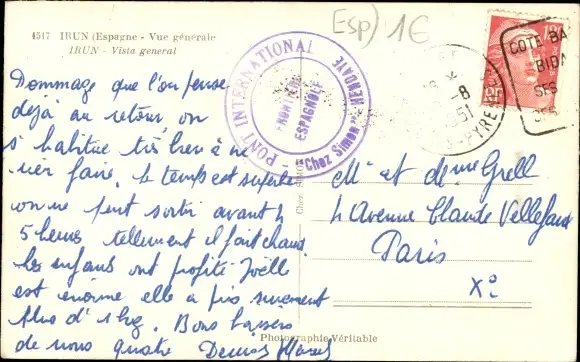 Esp) 16
4517 IRUN (Espagne - Vue générale
IRUN - Vista general
Dommage que l'on pense
déjà au retour on
s'habitue très bien à ne
rien faire. Le temps est superbe
on ne peut sortir avant 4
5 heures tellement il fait chaud
les enfants ont profité Joëlle
est énorme elle a pris surement
plus d'1 kg. Bons baisers
de nous quatre Denise
PONT INTERNATIONAL
"Chez Simon" HENDAYE
FRONTIERE
ESPAGNOLE
COTE BA
BIDA
SES
-8
51
PYREN
Chez SIMON
Mr et dme Grell
4 Avenue Claude Vellefaux
Paris
Xº
Photographie Véritable